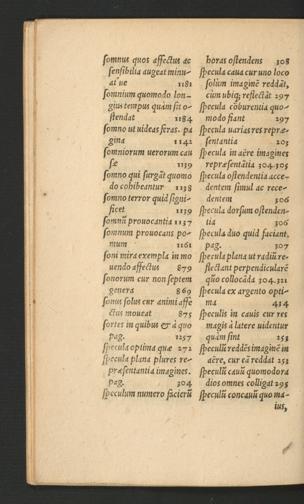 somnus quos affectus ac
sensibilia augeat minu-
at ue 1181
somnium quomodo lon-
gius tempus quàm sit o-
stendat 1184
somno ut uideas feras. pa
gina 1142
somniorum uerorum cau
sæ 1139
somno qui surgũt quomo
do cohibeantur 1138
somno terror quid signi-
ficet 1139
somnũ prouocantia 1137
somnum prouocans po-
mum 1161
soni mira exempla in mo
uendo affectus 879
sonorum cur non septem
genera 869
sonus solus cur animi affe
ctus moueat 875
sortes in quibus & à quo
pag. 1257
specula optima quæ 272
specula plana plures re-
præsentantia imagines.
pag. 304
speculum numero facierũ
horas ostendens 308
specula caua cur uno loco
solùm imaginẽ reddãt,
cùm ubiq; reflectãt 297
specula cõburentia quo-
modo fiant 297
specula uarias res repræ-
sentantia 203
specula in aëre imagines
repræsentãtia 304.305
specula ostendentia acce-
dentem simul ac rece-
dentem 306
specula dorsum ostenden-
tia 306
specula duo quid faciant.
pag. 307
specula plana ut radiũ re-
flectant perpendicularẽ
quõ collocãda 304.321
specula ex argento opti-
ma 414
speculis in cauis cur res
magis à latere uidentur
quàm sint 253
speculũ reddẽs imaginẽ in
aëre, cur eã reddat 253
speculũ cauũ quomodo ra
dios omnes colligat 295
speculũ concauũ quo ma-
ius,